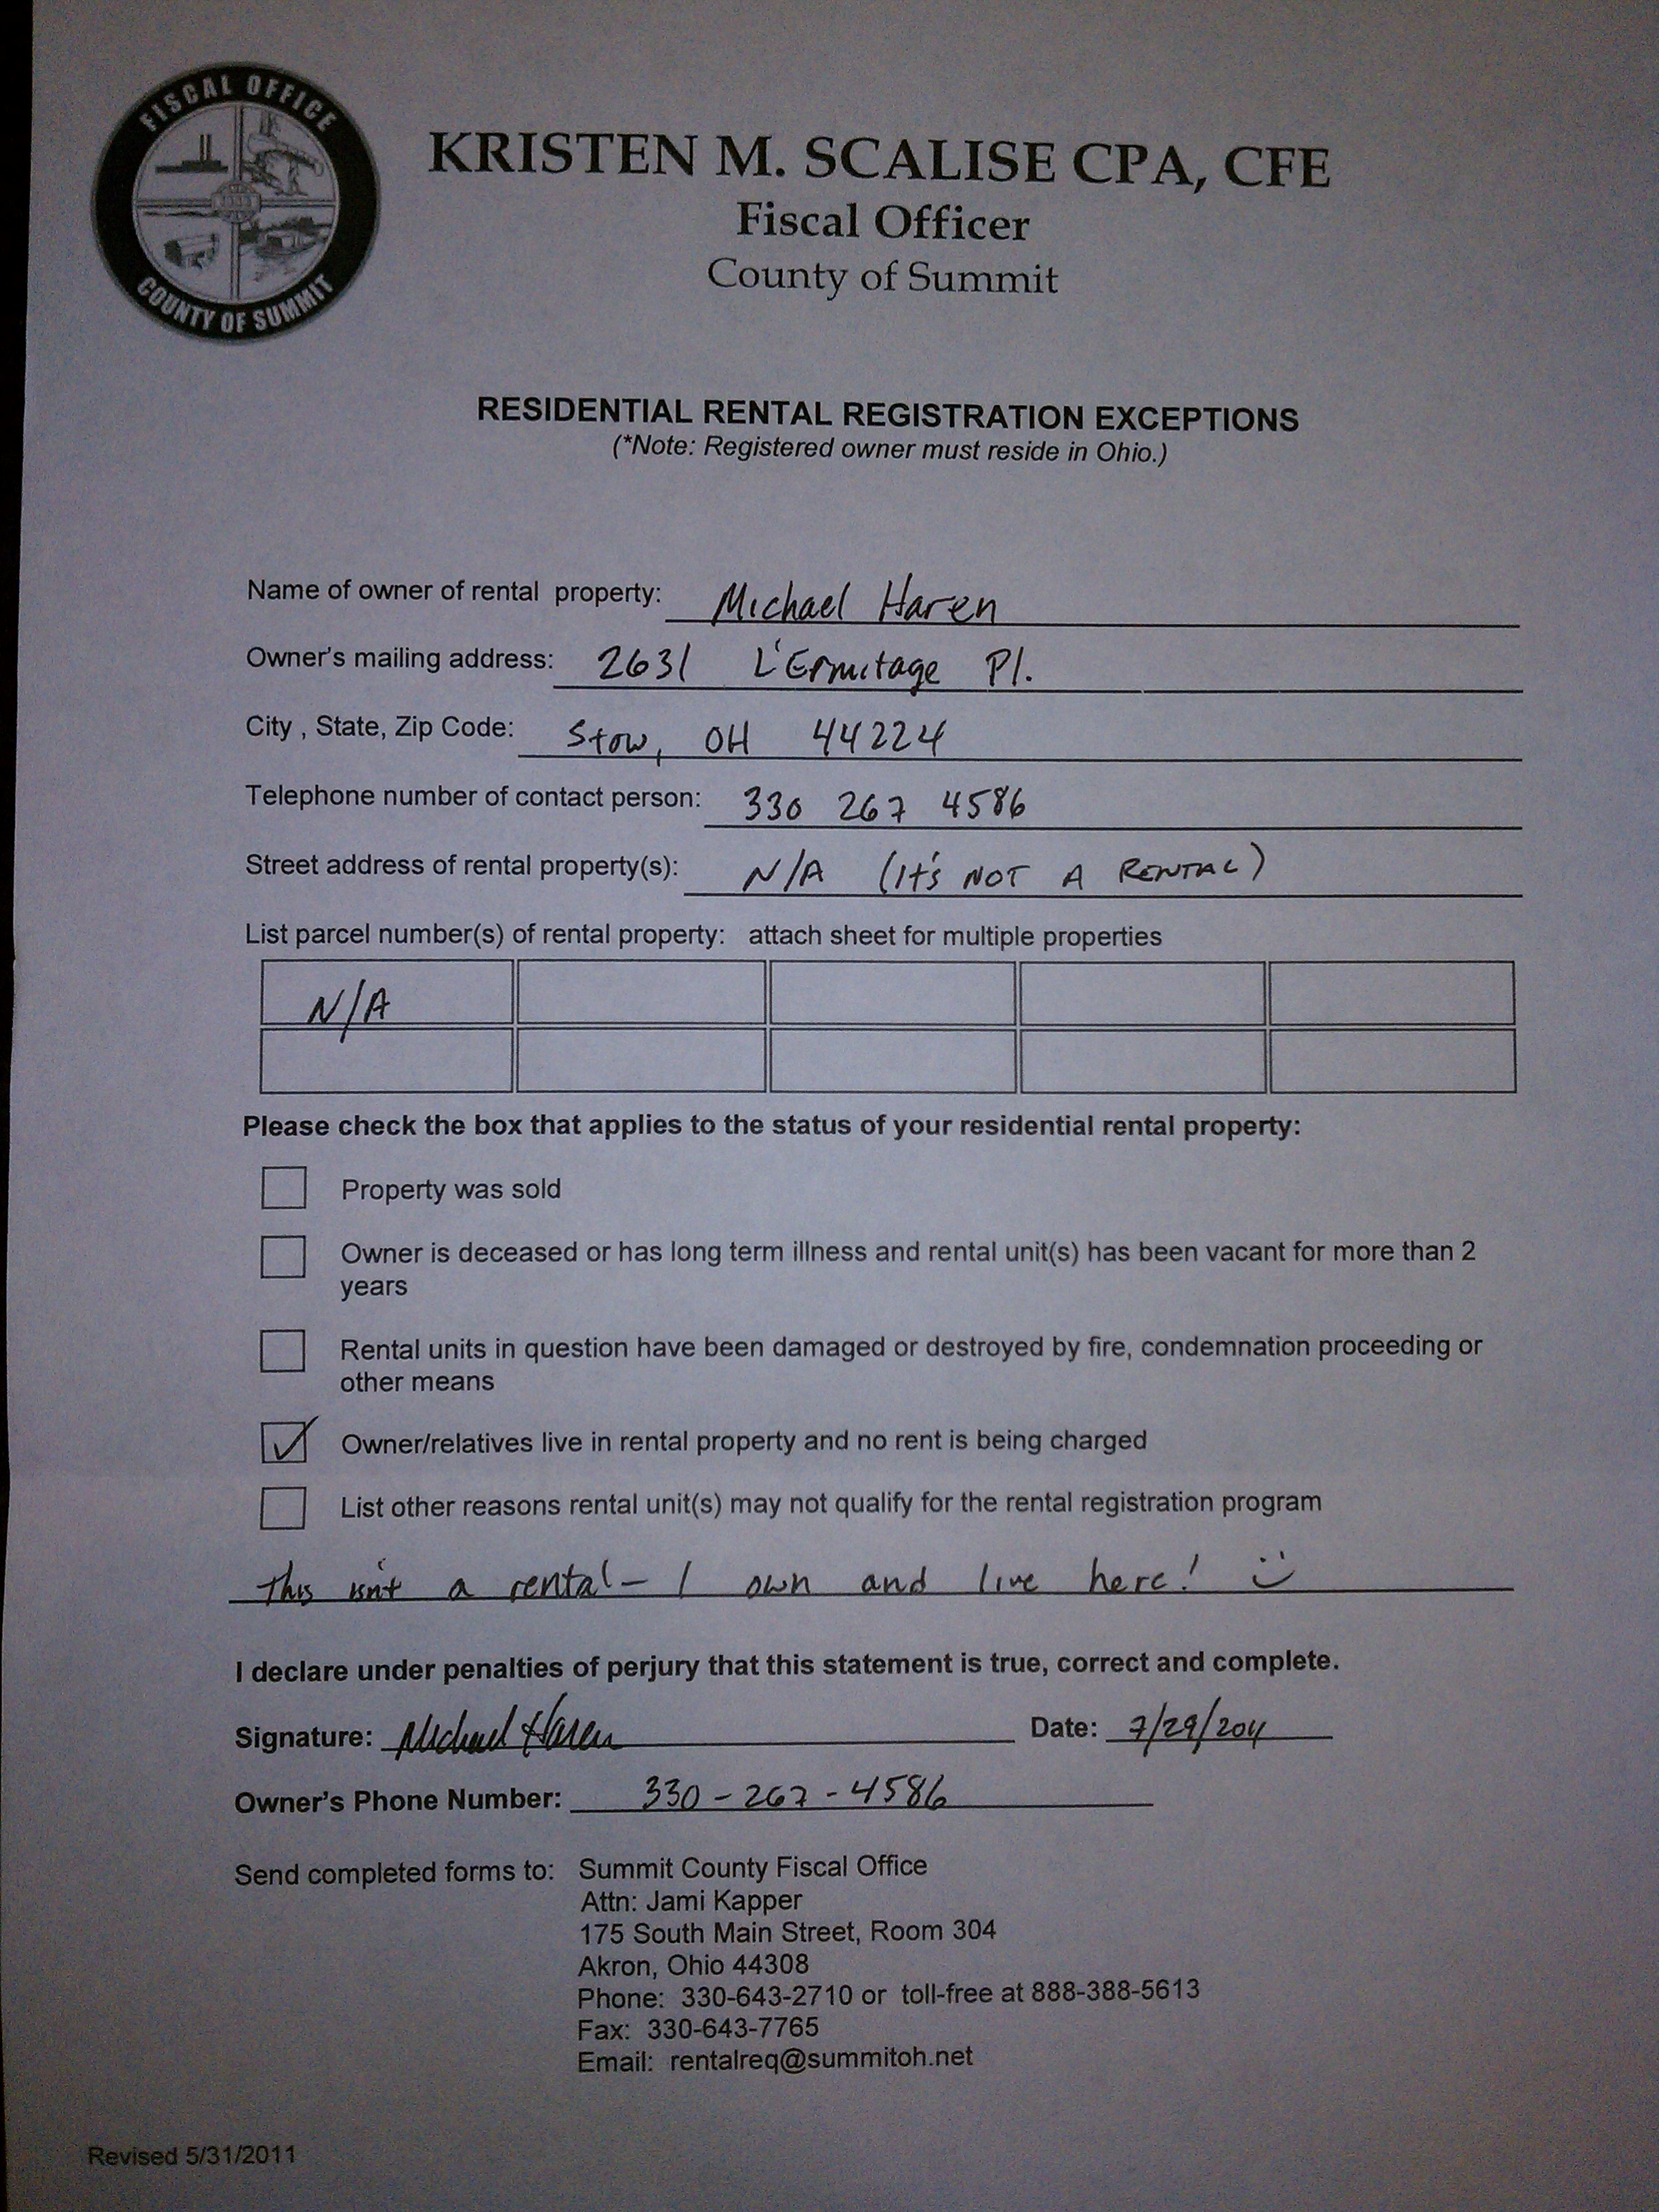 FISCAL OFFICE
COUNTY OF SUMMIT
KRISTEN M. SCALISE CPA, CFE
Fiscal Officer
County of Summit
RESIDENTIAL RENTAL REGISTRATION EXCEPTIONS
(*Note: Registered owner must reside in Ohio.)
Name of owner of rental property: Michael Haren
Owner's mailing address: 2631 L'Ermitage Pl.
City , State, Zip Code: Stow, OH 44224
Telephone number of contact person: 330 267 4586
Street address of rental property(s): N/A (It's NOT A RENTAL)
List parcel number(s) of rental property: attach sheet for multiple properties
N/A
Please check the box that applies to the status of your residential rental property:
Property was sold
Owner is deceased or has long term illness and rental unit(s) has been vacant for more than 2
years
Rental units in question have been damaged or destroyed by fire, condemnation proceeding or
other means
Owner/relatives live in rental property and no rent is being charged
List other reasons rental unit(s) may not qualify for the rental registration program
This isn't a rental - I own and live here! :)
I declare under penalties of perjury that this statement is true, correct and complete.
Signature: Michael Haren Date: 7/29/2011
Owner's Phone Number: 330-267-4586
Send completed forms to: Summit County Fiscal Office
Attn: Jami Kapper
175 South Main Street, Room 304
Akron, Ohio 44308
Phone: 330-643-2710 or toll-free at 888-388-5613
Fax: 330-643-7765
Email: rentalreq@summitoh.net
Revised 5/31/2011